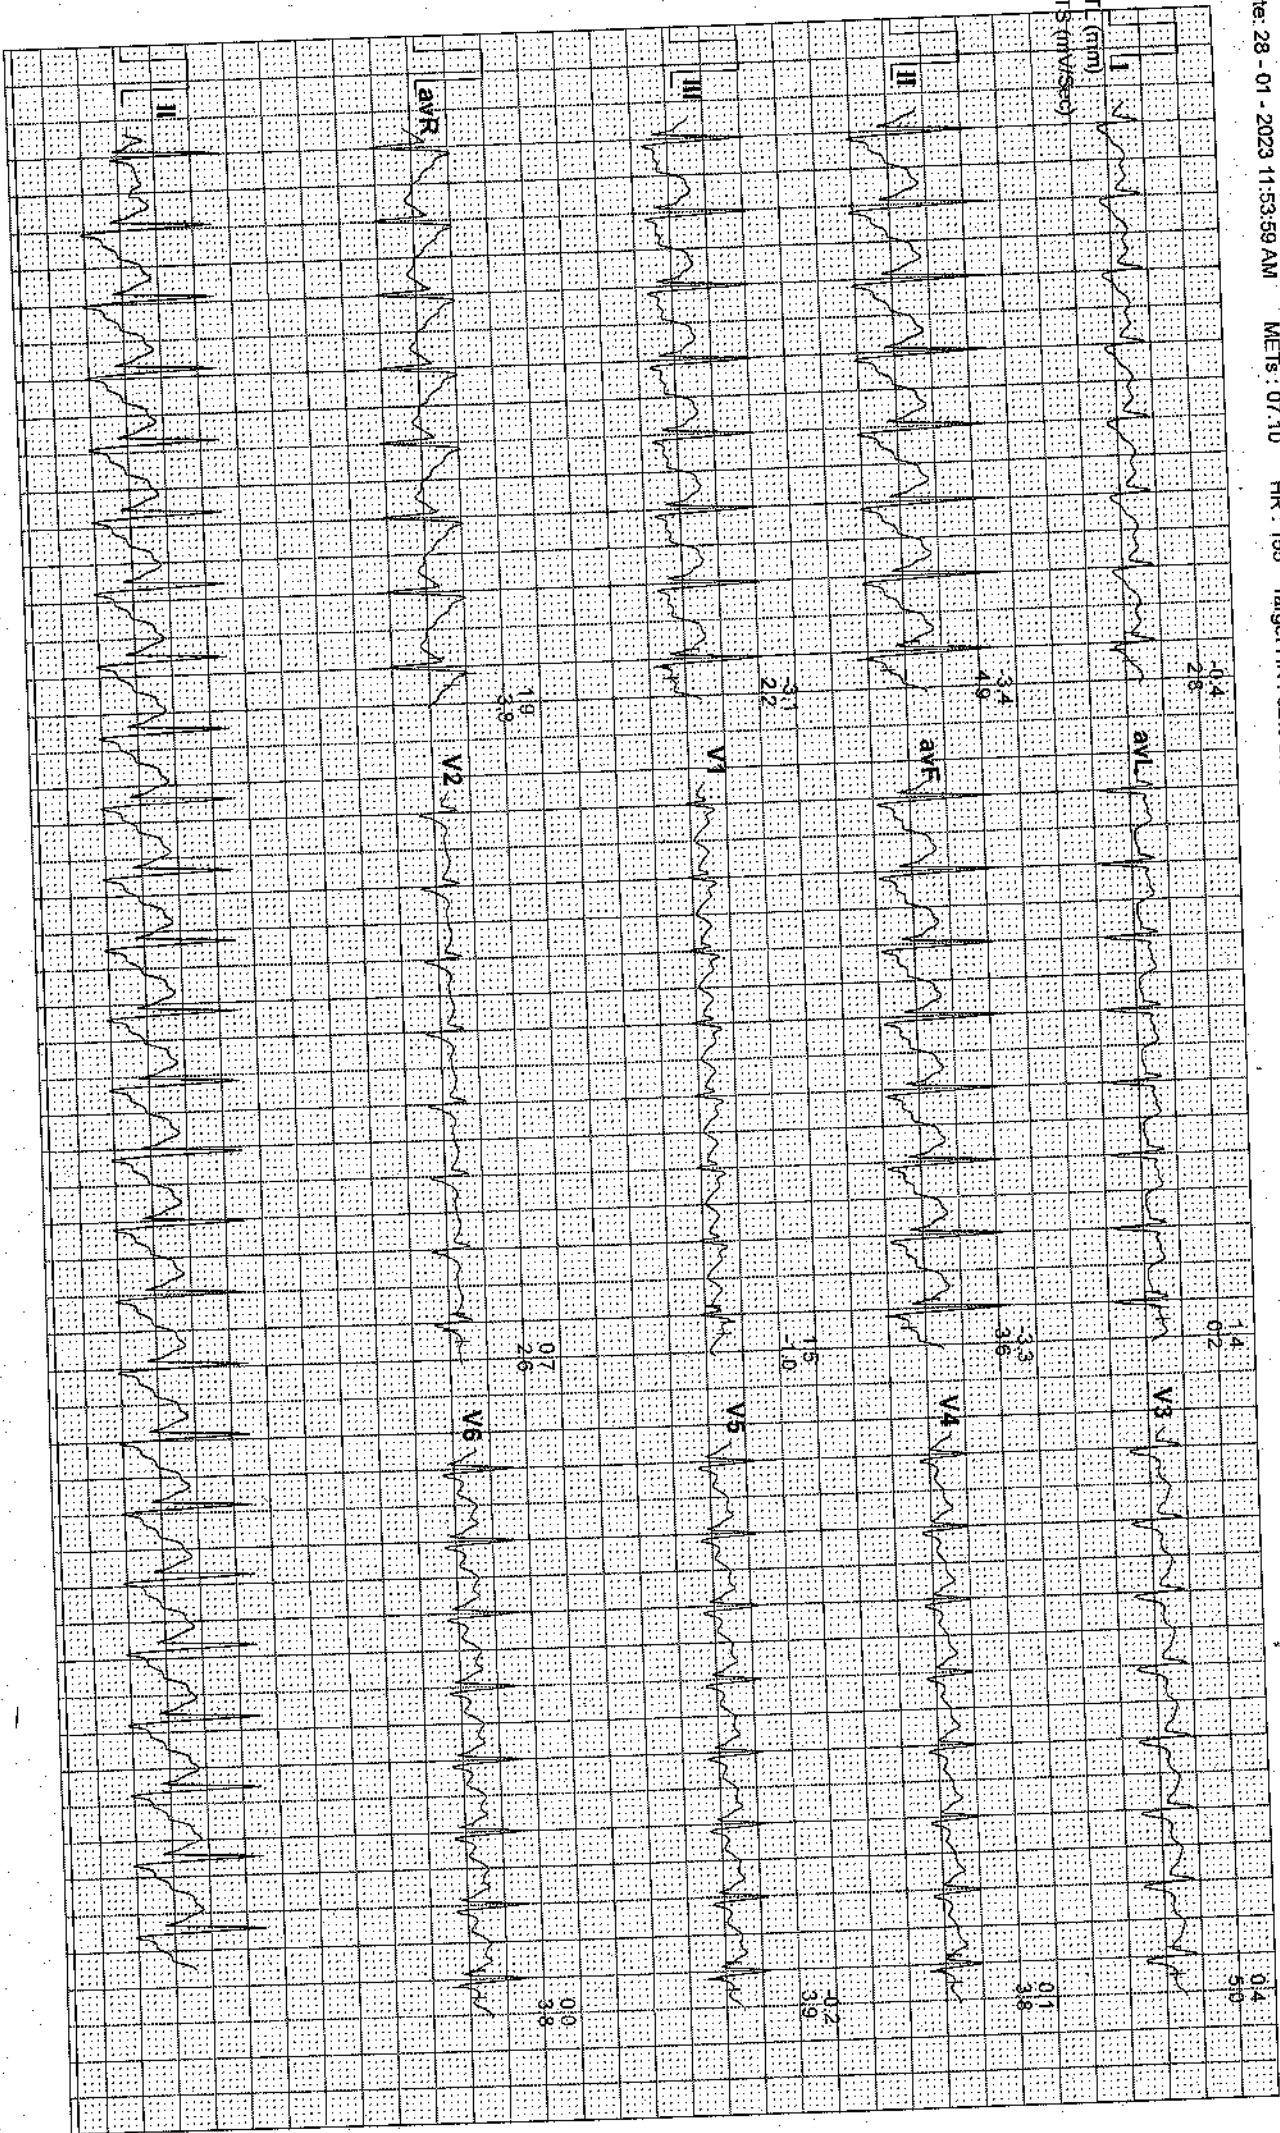 te: 28 - 01 - 2023 11:53:59 AM METs : 07.10 HR :
TL (mm)
TS (mV/Sec)
I
-0.4
2.8
avL
1.4
0.2
V3
0.4
5.0
II
-3.4
4.9
avF
-3.3
3.6
V4
0.1
3.8
III
-3.1
2.2
V1
1.5
-1.0
V5
-0.2
3.9
avR
1.9
-3.8
V2
0.7
2.6
V6
0.0
3.8
II